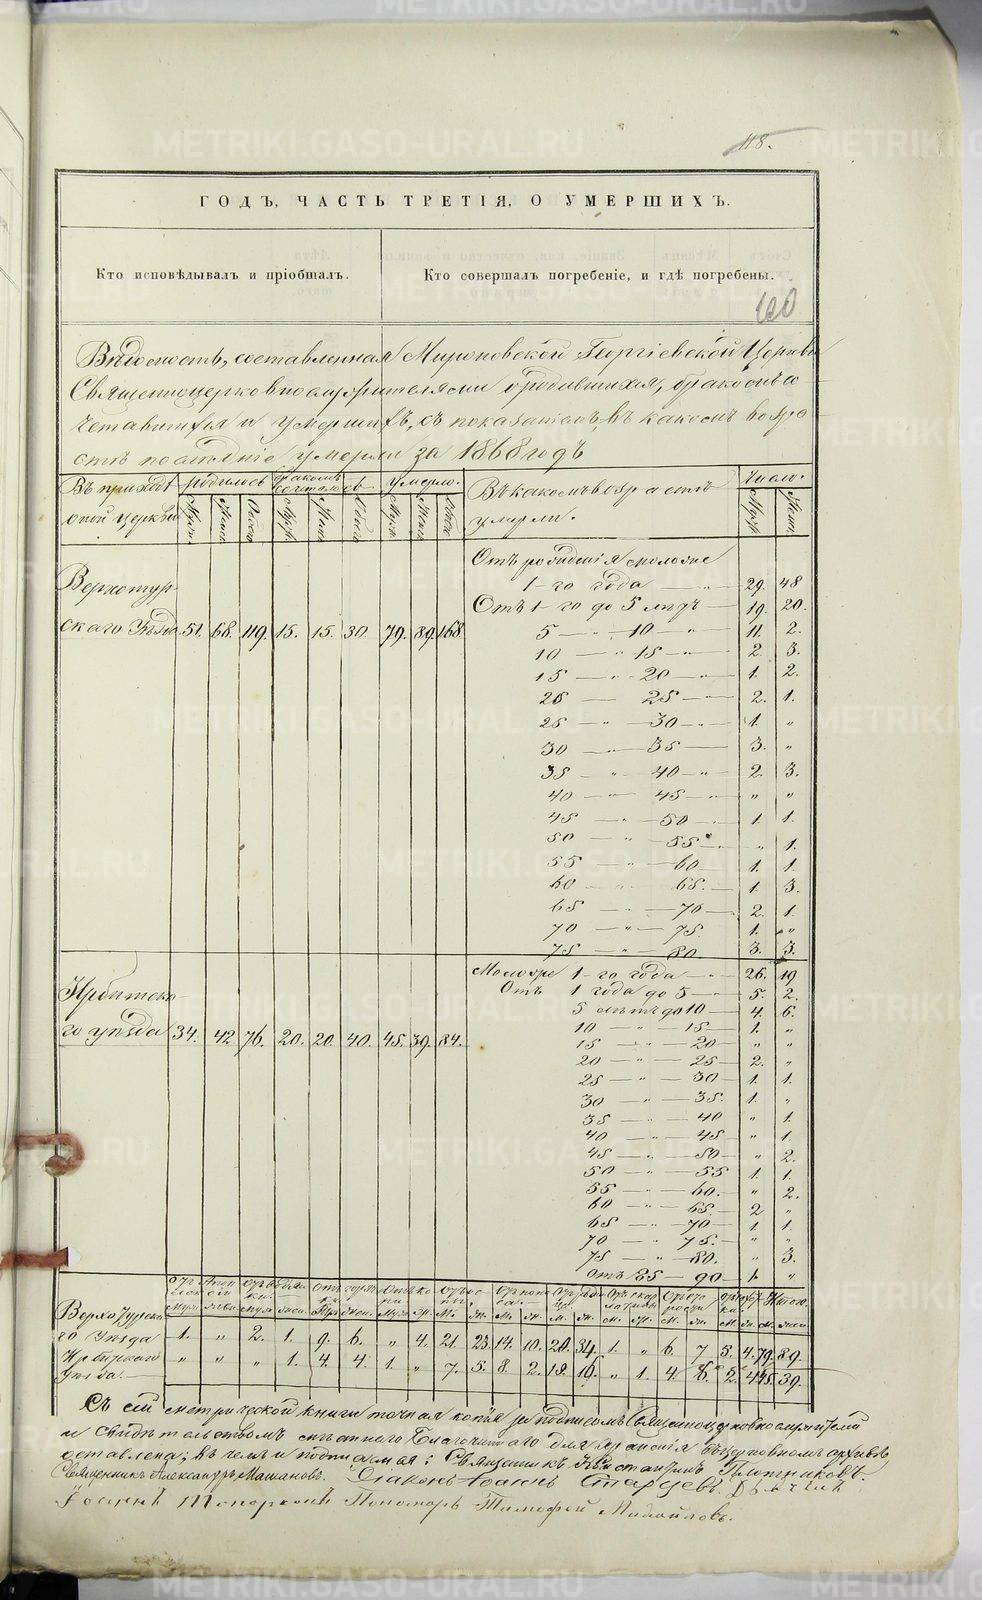 118.
ГОДЪ, ЧАСТЬ ТРЕТІЯ, О УМЕРШИХЪ.
Кто исповѣдывалъ и пріобщалъ. Кто совершалъ погребеніе, и гдѣ погребены.
120
Вѣдомость, составленная Мироновской Георгіевской Церкви
Священноцерковнослужителями о родившихся, бракомъ со
четавшихся и умершихъ, съ показаніемъ, въ какомъ возра
стѣ послѣдніе умерли за 1868 годъ
Въ приходѣ родилось бракомъ умерло. Въ какомъ возрастѣ Число.
оной церкви Муж. Жен. Обоего Муж. Жен. Обоего Муж. Жен. Обоего умерли. Муж. Жен.
Отъ рожденія моложе
Верхотур- 1-го года 29. 48
Отъ 1-го до 5 лѣтъ 19. 20.
скаго Уѣзда 51. 68. 119. 15. 15. 30. 79. 89. 168. 5 — " 10 — " 11. 2.
10 — " 15 — " 2. 3.
15 — " 20 — " 1. 2.
20 — 25 — " 2. 1.
25 — " 30 — " 1. "
30 — " 35 — 3. "
35 — " 40 — " 2. 3.
40 — " 45 — " " "
45 — " 50 — " 1. 1.
50 — " 55 " 1.
55 — " 60 1. 1.
60 — " 65. 1. 3.
65 — " 70 2. 1.
70 — " 75 1. "
75 — " 80 3. 3.
Моложе 1-го года — " 26. 19
Ирбитска- Отъ 1 года до 5 — 5. 2.
5 лѣтъ до 10 — 4. 6.
го уѣзда 34. 42 76. 20. 20. 40. 45. 39. 84. 10 — " 15 — 1. "
15 — " 20 — " "
20 — " 25 — 2. "
25 — " 30 — 1. 1.
30 — " 35. 1. "
35 — " 40 " 1.
40 — " 45 — " 1.
45 — " 50 — " 2.
50 — " 55 1. 1.
55 — " 60. " 2.
60 — " 65. 2 "
65 — " 70 — 1. 1.
70 — " 75. — " "
75 — " 80. " 3.
отъ 85 — 90 — 1. "
Верхотурска-
го Уѣзда 1. " 2. 1. 9. 6. " 4. 21. 23. 14. 10. 20. 34. 1. " 6. 7 5. 4. 79. 89.
Ирбитскаго " " " 1. 4. 4. 1. " 7. 5. 8. 2. 18. 16. " 1. 4. 6. 2. 4 45. 39.
Уѣзда.
Съ сей метрической книги точная копія за подписомъ Священноцерковнослужителей
и свидѣтельствомъ мѣстнаго Благочиннаго для храненія въ церковномъ архивѣ
оставлена; въ чемъ и подписуемся: Священникъ Константинъ Плотниковъ.
Священникъ Александръ Машановъ. Діаконъ Іоаннъ Старцевъ. Дьячекъ
Іоаннъ Топорковъ Пономарь Тимофей Михайловъ.
METRIKI.GASO-URAL.RU